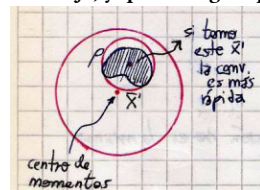 ρ
si tomo
este x̄'
la conv.
es más
rápida
x̄'
centro de
momentos